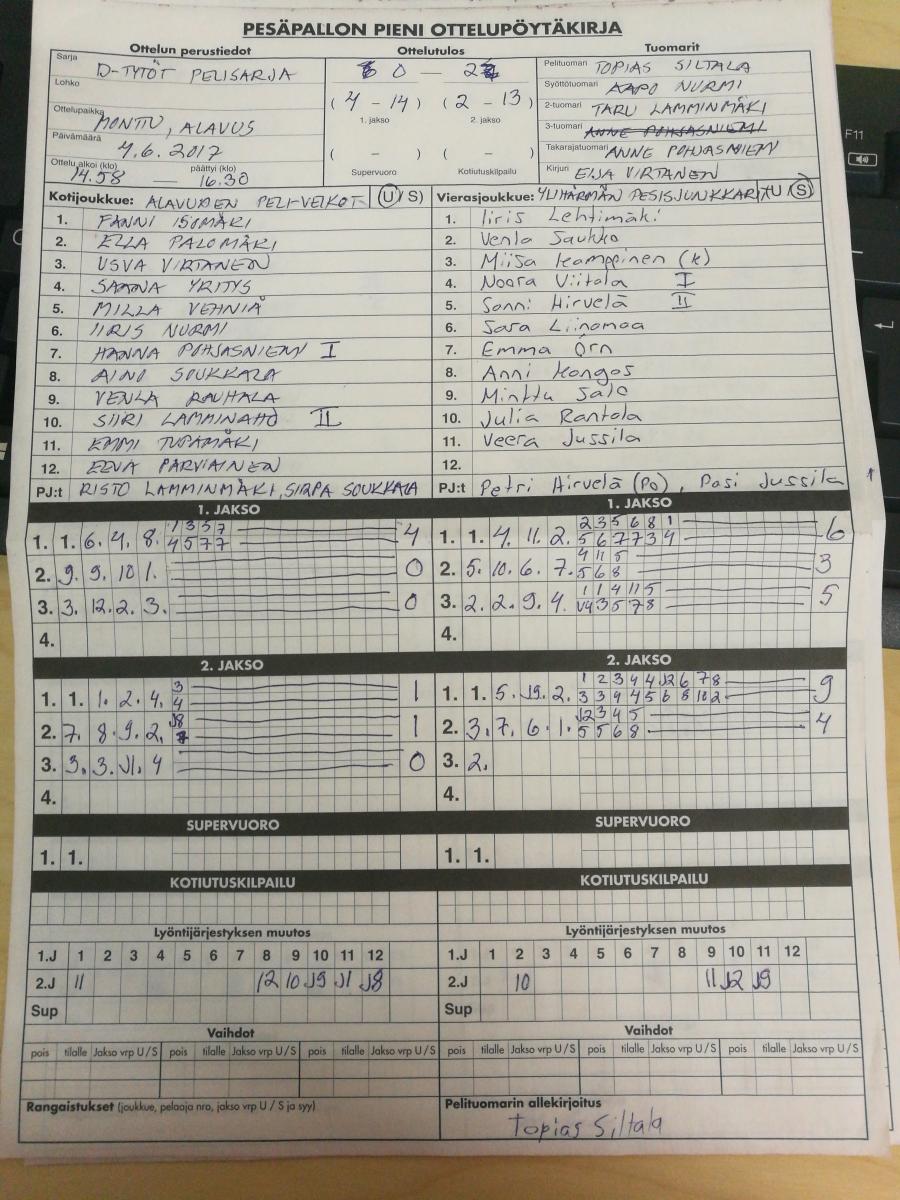 PESÄPALLON PIENI OTTELUPÖYTÄKIRJA
Ottelun perustiedot
Ottelutulos
Tuomarit
Sarja D-TYTÖT PELISARJA
0 — 2
Pelituomari TOPIAS SILTALA
Lohko
Syöttötuomari AAPO NURMI
(4 - 14) (2 - 13)
1. jakso 2. jakso
2-tuomari TARU LAMMINMÄKI
Ottelupaikka MONTTU, ALAVUS
3-tuomari ANNE POHJASNIEMI
Päivämäärä 4.6.2017
( - ) ( - )
Takarajatuomari ANNE POHJASNIEMI
Ottelu alkoi (klo) päättyi (klo)
14.58 — 16.30
Supervuoro Kotiutuskilpailu
Kirjuri EIJA VIRTANEN
Kotijoukkue: ALAVUDEN PELI-VEIKOT (U/S)
1. FANNI ISOMÄKI
2. ELLA PALOMÄKI
3. USVA VIRTANEN
4. SAANA YRITYS
5. MILLA VEHNIÄ
6. IIRIS NURMI
7. HANNA POHJASNIEMI I
8. AINO SOUKKALA
9. VENLA RAUHALA
10. SIIRI LAMMINAHO II
11. EMMI TUPAMÄKI
12. EEVA PARVIAINEN
PJ:t RISTO LAMMINMÄKI, SIRPA SOUKKALA
Vierasjoukkue: YLIHÄRMÄN PESISJUNKKARIT (U/S)
1. Iiris Lehtimäki
2. Venla Saukko
3. Miisa Kamppinen (k)
4. Noora Viitala I
5. Sonni Hirvelä II
6. Sara Liinamaa
7. Emma Örn
8. Anni Kangas
9. Minttu Salo
10. Julia Rantala
11. Veera Jussila
12.
PJ:t Petri Hirvelä (PO), Pasi Jussila
1. JAKSO
1. 1. 6. 4. 8. 1 3 5 7 4
4 5 7 7
2. 9. 9. 10 1. 0
3. 3. 12. 2. 3. 0
4.
1. JAKSO
1. 1. 4. 11. 2. 2 3 5 6 8 1 6
5 6 7 7 3 4
2. 5. 10. 6. 7. 4 11 5 3
5 6 8
3. 2. 2. 9. 4. 1 1 4 11 5 5
3 5 7 8
4.
2. JAKSO
1. 1. 1. 2. 4. 3 1
4
2. 7. 8. 9. 2. J8 1
3. 3. 3. J1. 4 0
4.
2. JAKSO
1. 1. 5. J9. 2. 1 2 3 4 4 J2 6 7 8 9
3 3 4 4 5 6 8 10 2
2. 3. 7. 6. 1. J2 3 4 5 4
5 5 6 8
3. 2.
4.
SUPERVUORO
1. 1.
SUPERVUORO
1. 1.
KOTIUTUSKILPAILU
KOTIUTUSKILPAILU
Lyöntijärjestyksen muutos
1.J 1 2 3 4 5 6 7 8 9 10 11 12
2.J 11 12 10 J9 J1 J8
Sup
Lyöntijärjestyksen muutos
1.J 1 2 3 4 5 6 7 8 9 10 11 12
2.J 10 11 J2 J9
Sup
Vaihdot
pois tilalle Jakso vrp U/S pois tilalle Jakso vrp U/S pois tilalle Jakso vrp U/S
Vaihdot
pois tilalle Jakso vrp U/S pois tilalle Jakso vrp U/S pois tilalle Jakso vrp U/S
Rangaistukset (joukkue, pelaaja nro, jakso vrp U / S ja syy)
Pelituomarin allekirjoitus
Topias Siltala
F11